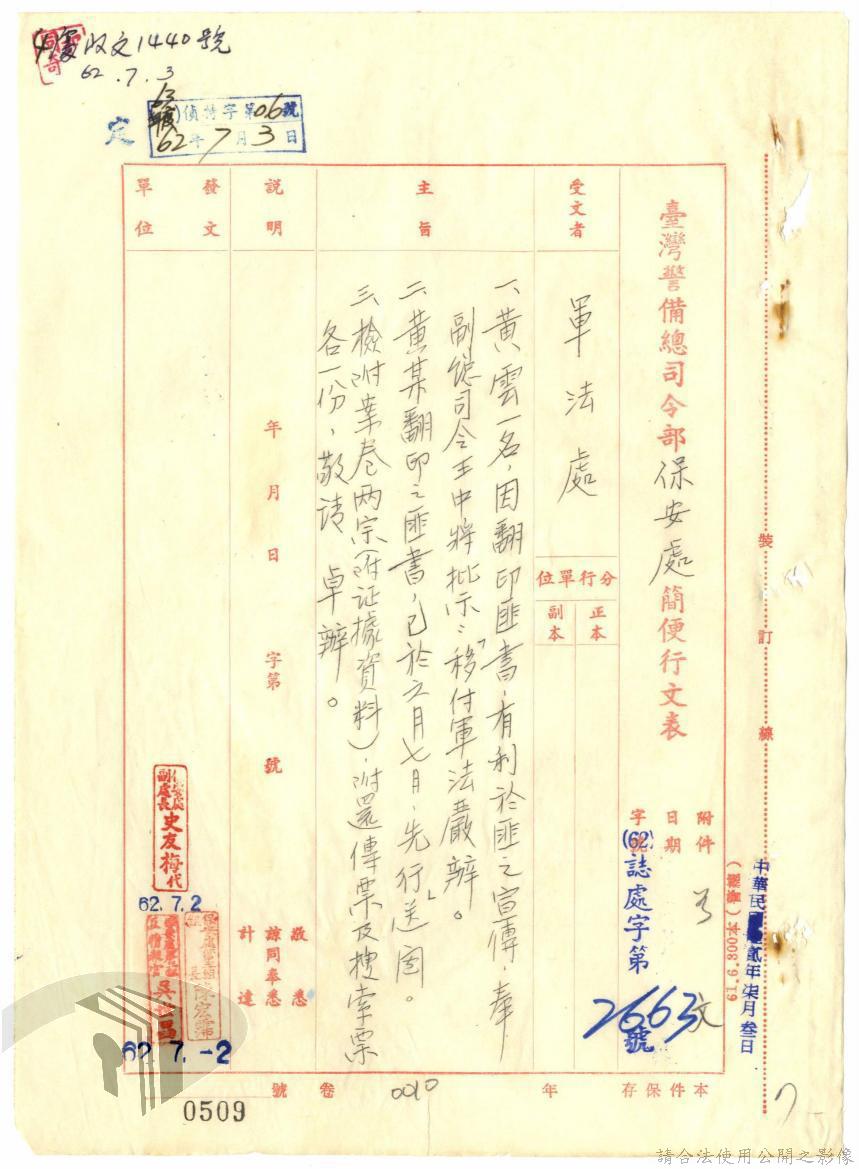 收文1440號
62.7.3
偵特字第06號
62年7月3日
定
臺灣警備總司令部保安處簡便行文表
附件 
日期 中華民國陸拾貳年柒月叁日
字號 (62)誌處字第2663號
受文者
軍法處
分行單位
正本
副本
主旨
一、黃雲一名,因翻印匪書,有利於匪之宣傳,奉
副總司令王中將批示:「移付軍法嚴辦」。
二、黃某翻印之匪書,已於六月七日,先行送囼。
三、檢附案卷兩宗(附証據資料),附還傳票及搜索票
各一份,敬請 卓辦。
說明
年 月 日 字第 號
敬悉
諒同奉悉
計達
發文單位
副處長史友梅代
62.7.2
62.7.-2
裝訂線
本件保存 年
0010 卷 號
0509
請合法使用公開之影像